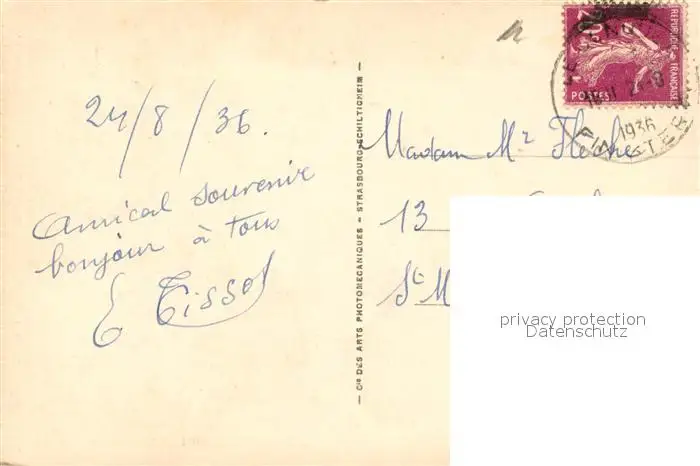 24/8/36.
Amical souvenir
bonjour à tous
E Tissot
Cie DES ARTS PHOTOMECANIQUES - STRASBOURG-SCHILTIGHEIM
20c
REPUBLIQUE FRANÇAISE
POSTES
1936
Madame Mr Fleche
13
St M
privacy protection
Datenschutz